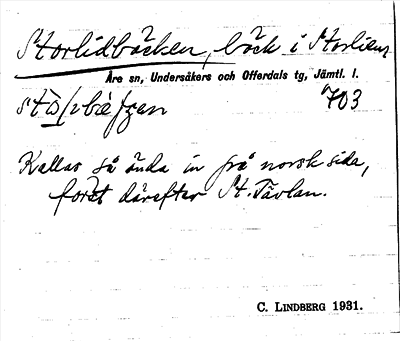 Storlidbäcken, bäck i Storlien
Åre sn, Undersåkers och Offerdals tg, Jämtl. l.
703
Kallas så ända in på norsk sida,
först därefter St. Tävlan.
C. LINDBERG 1931.